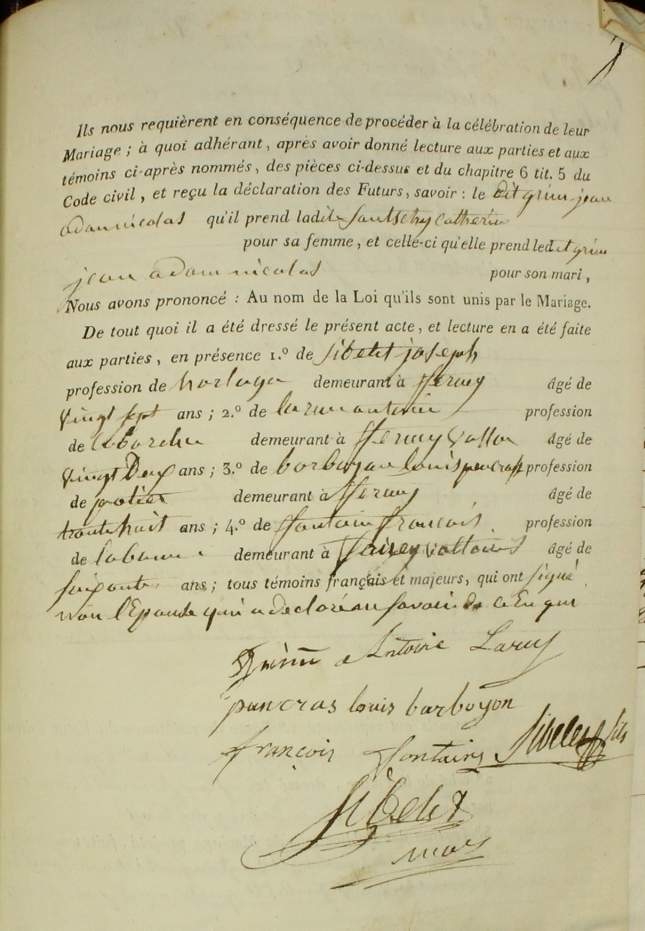 Ils nous requièrent en conséquence de procéder à la célébration de leur
Mariage ; à quoi adhérant, après avoir donné lecture aux parties et aux
témoins ci-après nommés, des pièces ci-dessus et du chapitre 6 tit. 5 du
Code civil, et reçu la déclaration des Futurs, savoir : le dit grim jean
adam nicolas qu'il prend ladite catherine
pour sa femme, et celle-ci qu'elle prend ledit grim
jean adam nicolas pour son mari,
Nous avons prononcé : Au nom de la Loi qu'ils sont unis par le Mariage.
De tout quoi il a été dressé le présent acte, et lecture en a été faite
aux parties, en présence 1.º de Sibelet joseph
profession de horloger demeurant à ferney âgé de
vingt sept ans ; 2.º de antoine profession
de demeurant à ferney âgé de
vingt Deux ans ; 3.º de barboyon louis pancrass profession
de potier demeurant à ferney âgé de
trente huit ans ; 4.º de fontaine françois profession
de demeurant à âgé de
soixante ans ; tous témoins français et majeurs, qui ont signé
non l'Epouse qui a declaré
Antoine
pancras louis barboyon
françois fontaine Sibelet fils
Sibelet